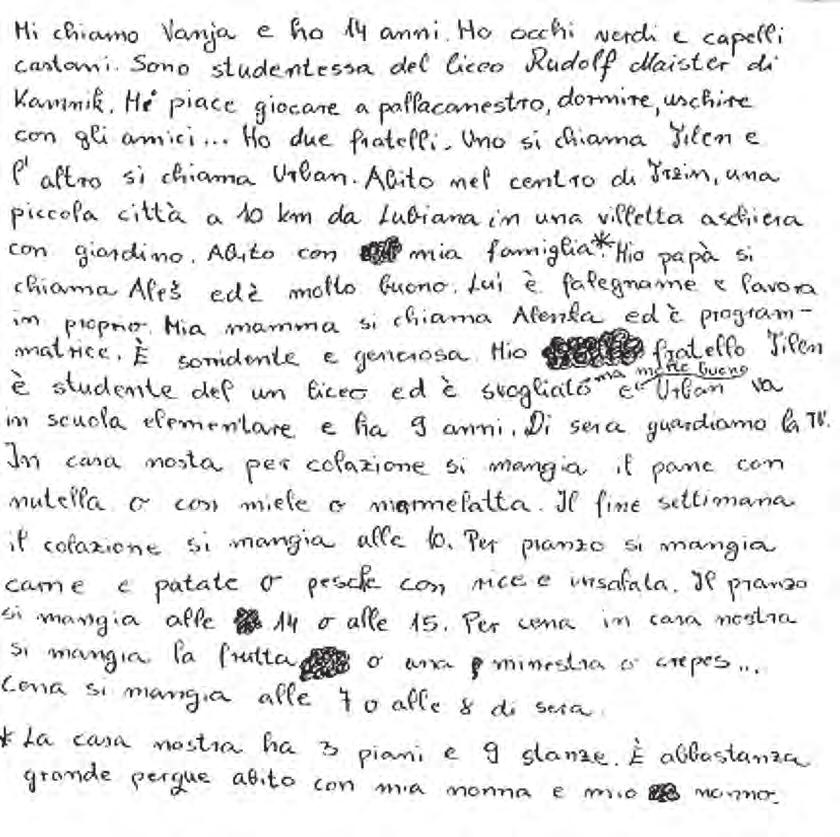 Mi chiamo Vanja e ho 14 anni. Ho occhi verdi e capelli
castani. Sono studentessa del liceo Rudolf Maister di
Kamnik. Mi piace giocare a pallacanestro, dormire, uschire
con gli amici... Ho due fratelli. Uno si chiama Tilen e
l'altro si chiama Urban. Abito nel centro di Trzin, una
piccola città a 10 km da Lubiana in una villetta aschiera
con giardino. Abito con mia famiglia*. Mio papà si
chiama Aleš ed è molto buono. Lui è falegname e lavora
in proprio. Mia mamma si chiama Alenka ed è program-
matrice. È sorridente e generosa. Mio fratello Tilen
ma molto buono
è studente del un liceo ed è svogliato e Urban va
in scuola elementare e ha 9 anni. Di sera guardiamo la TV.
In casa nosta per colazione si mangia il pane con
nutella o con miele o marmelatta. Il fine settimana
il colazione si mangia alle 10. Per pranzo si mangia
carne e patate o pesche con rice e insalata. Il pranzo
si mangia alle 14 o alle 15. Per cena in casa nostra
si mangia la frutta o una minestra o crepes...
Cena si mangia alle 7 o alle 8 di sera.
* La casa nostra ha 3 piani e 9 stanze. È abbastanza
grande perque abito con mia nonna e mio nonno.